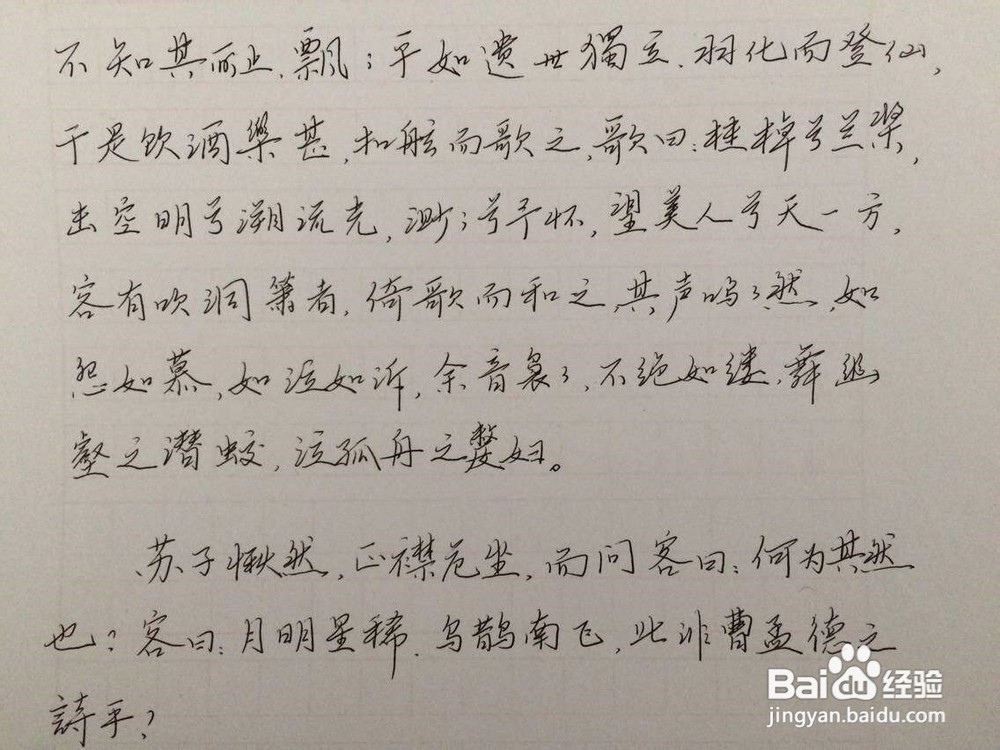 不知其所止,飘々乎如遗世獨立,羽化而登仙,
于是饮酒樂甚,扣舷而歌之,歌曰:桂棹兮兰桨,
击空明兮溯流光,渺々兮予怀,望美人兮天一方,
客有吹洞箫者,倚歌而和之,其声呜々然,如
怨如慕,如泣如诉,余音袅々,不绝如缕,舞幽
壑之潜蛟,泣孤舟之嫠妇。
苏子愀然,正襟危坐,而问客曰:何为其然
也?客曰:月明星稀,乌鹊南飞,此非曹孟德之
詩乎?
Baidu经验
jingyan.baidu.com